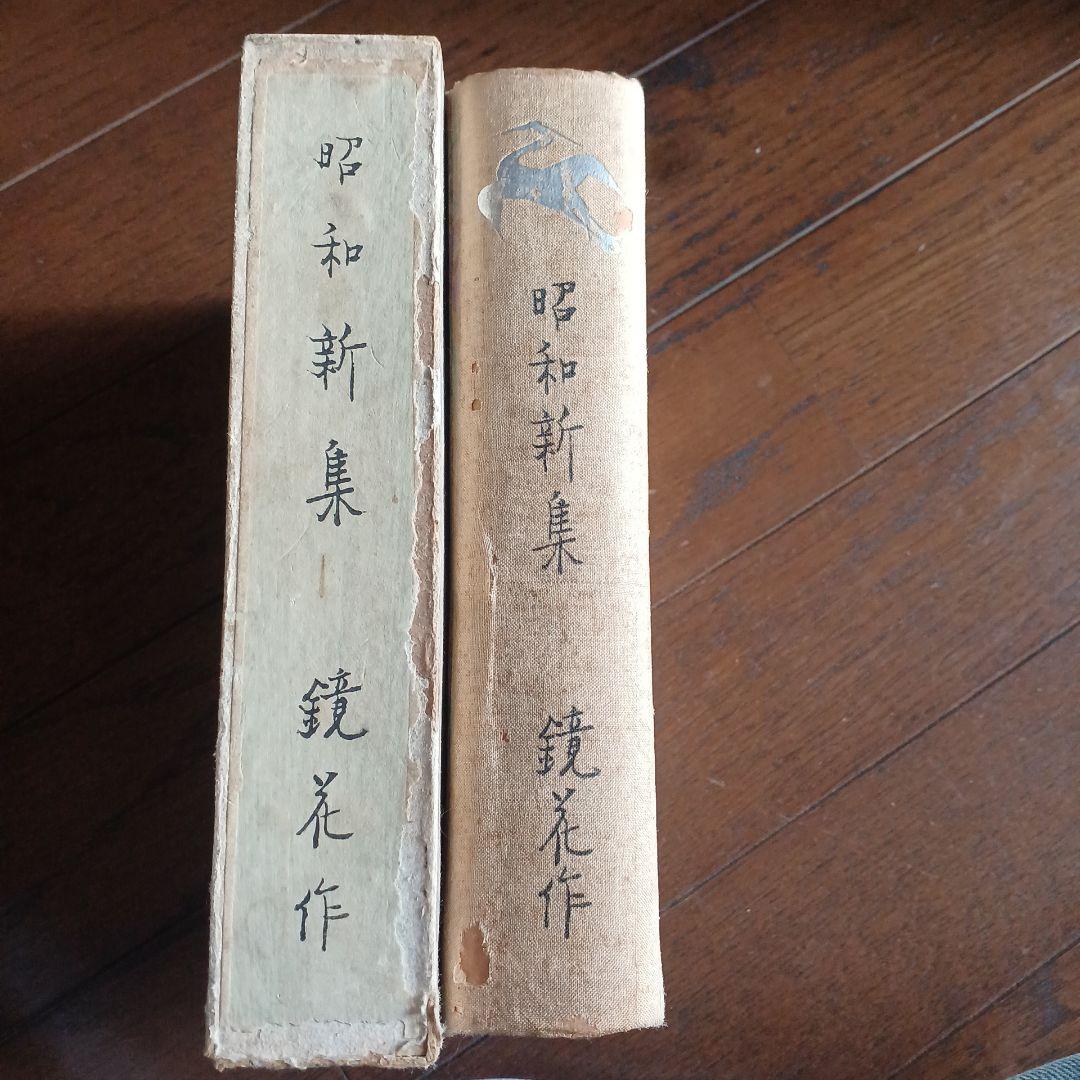 昭和新集 鏡花作
昭和新集 鏡花作